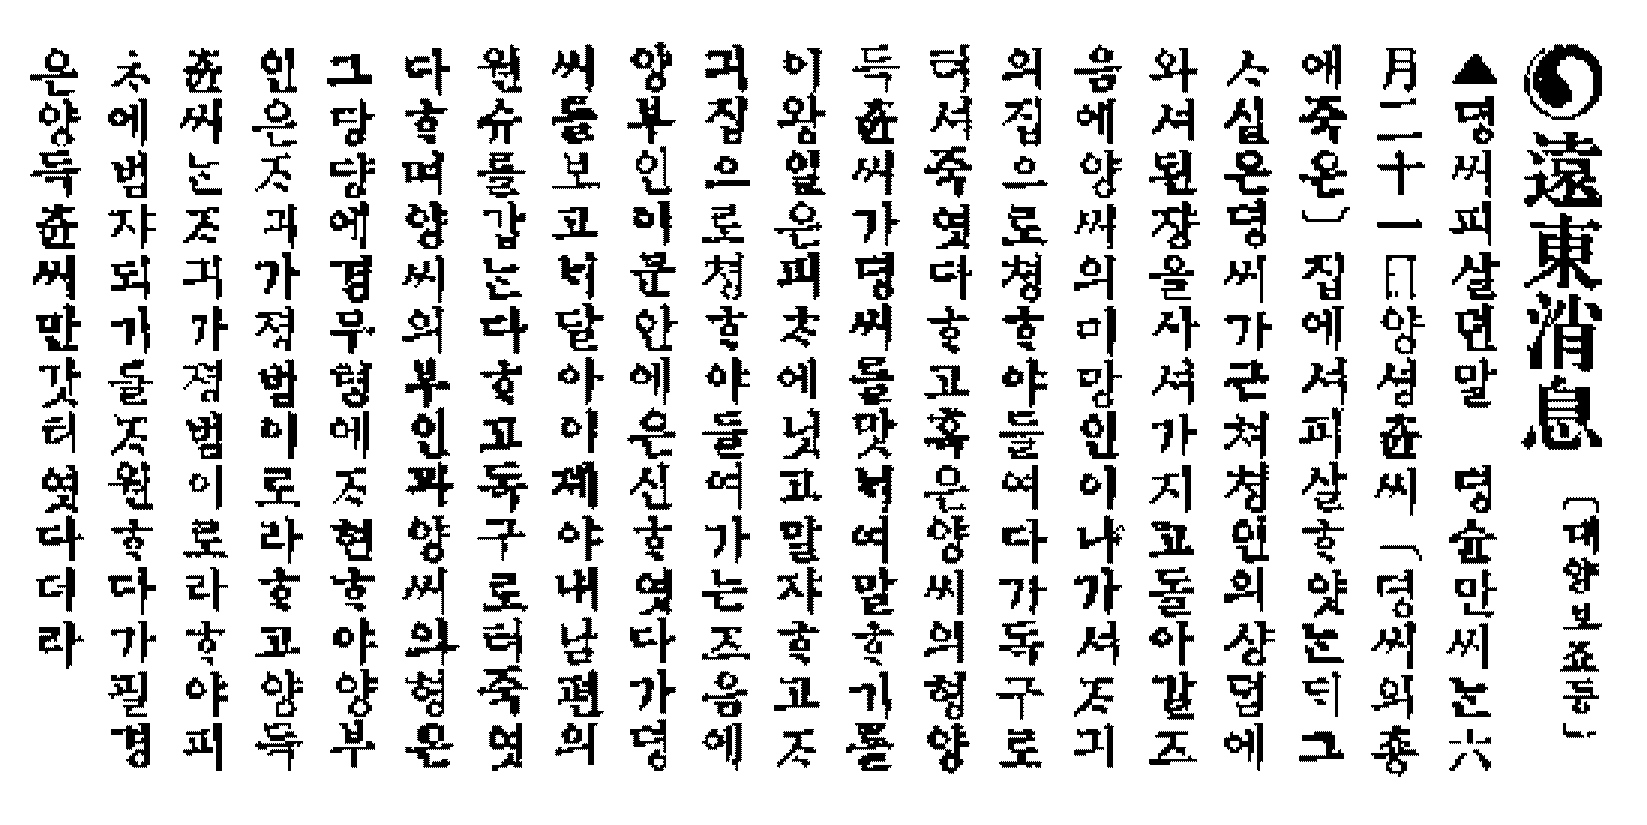 遠東消息 〔대양보죠등〕
▲뎡씨피살뎐말 뎡슌만씨ᄂᆞᆫ六
月二十一日양셩츈씨（뎡씨의춍
에죽은）집에셔피살ᄒᆞ얏ᄂᆞᆫᄃᆡ그
ᄉᆞ실은뎡씨가근쳐쳥인의샹뎜에
와셔된쟝을사셔가지고돌아갈즈
음에양씨의미망인이나가셔ᄌᆞ긔
의집으로쳥ᄒᆞ야들여다가독구로
텨셔죽엿다ᄒᆞ고혹은양씨의형양
득츈씨가뎡씨를맛너여말ᄒᆞ기를
이왕일은피ᄎᆞ에닛고말쟈ᄒᆞ고ᄌᆞ
긔집으로쳥ᄒᆞ야들여가는즈음에
양부인이문안에은신ᄒᆞ엿다가뎡
씨를보고너달아이졔야내남편의
원슈를갑ᄂᆞᆫ다ᄒᆞ고독구로텨죽엿
다ᄒᆞ며양씨의부인과양씨의형은
그망당에경무텽에ᄌᆞ현ᄒᆞ야양부
인은ᄌᆞ긔가졍범이로라ᄒᆞ고양득
츈씨ᄂᆞᆫᄌᆞ긔가졍범이로라ᄒᆞ야피
ᄎᆞ에범쟈되기를ᄌᆞ원ᄒᆞ다가필경
은양득츈씨만갓티엿다더라